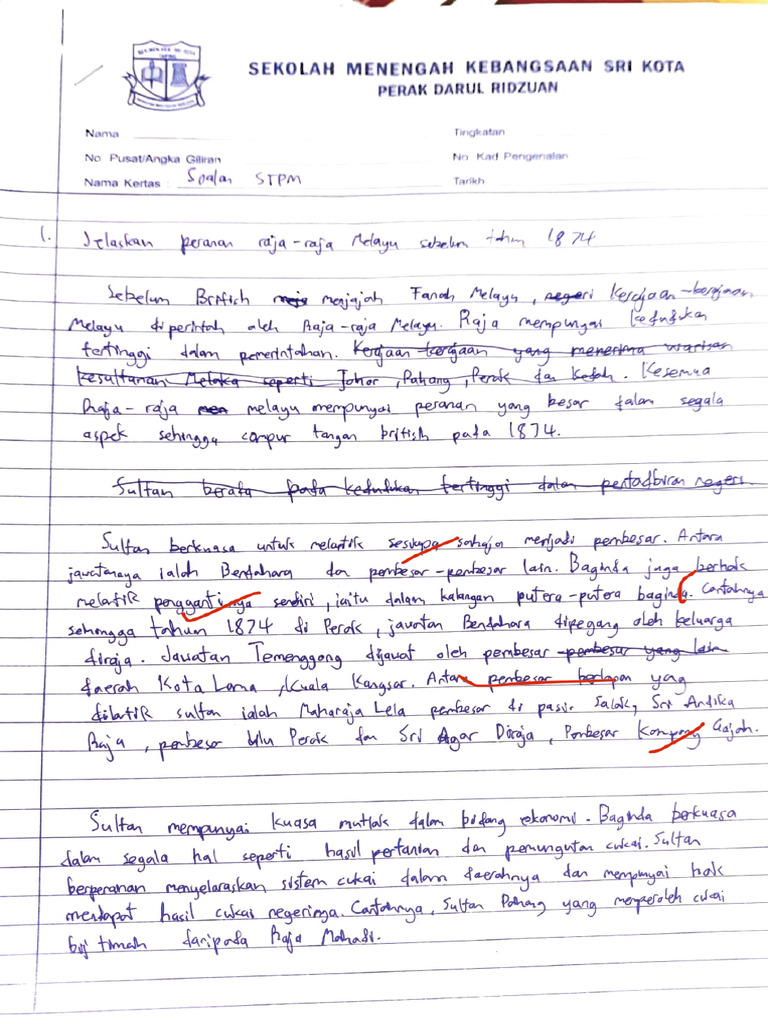 SEKOLAH MENENGAH KEBANGSAAN SRI KOTA
PERAK DARUL RIDZUAN
Nama
Tingkatan
No Pusat/Angka Giliran
No Kad Pengenalan
Nama Kertas : Soalan STPM
Tarikh
1. Jelaskan peranan raja-raja Melayu sebelum tahun 1874
Sebelum British menjajah Tanah Melayu, negeri kerajaan-kerajaan
Melayu diperintah oleh Raja-raja Melayu. Raja mempunyai kedudukan
tertinggi dalam pemerintahan. Kerajaan-kerajaan yang menerima warisan
kesultanan Melaka seperti Johor, Pahang, Perak dan Kedah. Kesemua
Raja-raja melayu mempunyai peranan yang besar dalam segala
aspek sehingga campur tangan british pada 1874.
Sultan berada pada kedudukan tertinggi dalam pentadbiran negeri
Sultan berkuasa untuk melantik sesiapa sahaja menjadi pembesar. Antara
jawatannya ialah Bendahara dan pembesar-pembesar lain. Baginda juga berhak
melantik penggantinya sendiri, iaitu dalam kalangan putera-putera baginda. Contohnya
sehingga tahun 1874 di Perak, jawatan Bendahara dipegang oleh keluarga
diraja. Jawatan Temenggong dijawat oleh pembesar pembesar yang lain
daerah Kota Lama, Kuala Kangsar. Antara pembesar berlapan yang
dilantik sultan ialah Maharaja Lela pembesar di pasir Salak, Sri Andika
Raja, pembesar hulu Perak dan Sri Agar Diraja, Pembesar Kampung Gajah.
Sultan mempunyai kuasa mutlak dalam bidang ekonomi. Baginda berkuasa
dalam segala hal seperti hasil pertanian dan pemungutan cukai. Sultan
berperanan menyelaraskan sistem cukai dalam daerahnya dan mempunyai hak
mendapat hasil cukai negerinya. Contohnya, Sultan Pahang yang memperoleh cukai
biji timah daripada Raja Mahadi.